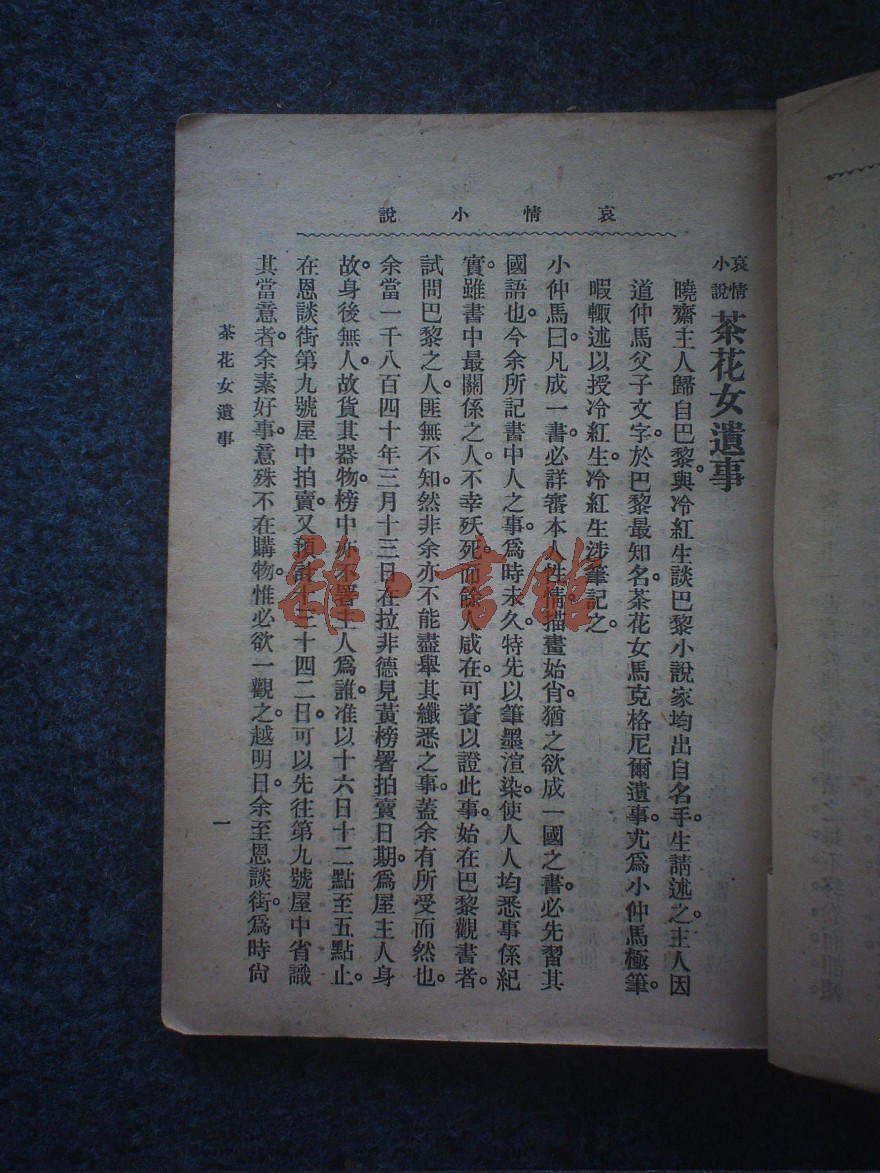 哀情小說
哀情小說 茶花女遺事
曉齋主人歸自巴黎。與冷紅生談巴黎小說家均出自名手。生請述之。主人因
道仲馬父子文字。於巴黎最知名。茶花女馬克格尼爾遺事。尤爲小仲馬極筆。
暇輒述以授冷紅生。冷紅生涉筆記之。
小仲馬曰。凡成一書。必詳審本人性情。描畫始肖。猶之欲成一國之書。必先習其
國語也。今余所記書中人之事。爲時未久。特先以筆墨渲染。使人人均悉事係紀
實。雖書中最關係之人。不幸殀死。而餘人咸在。可資以證此事。始在巴黎觀書者。
試問巴黎之人。匪無不知。然非余亦不能盡舉其纖悉之事。蓋余有所受而然也。
余當一千八百四十年三月十三日在拉非德見黃榜署拍賣日期。爲屋主人身
故。身後無人。故貨其器物。榜中亦不署主人爲誰。准以十六日十二點至五點止。
在恩談街第九號屋中拍賣。又預計十三十四二日。可以先往第九號屋中省識
其當意者。余素好事。意殊不在購物。惟必欲一觀之。越明日。余至恩談街。爲時尙
茶花女遺事
一
雜·書館